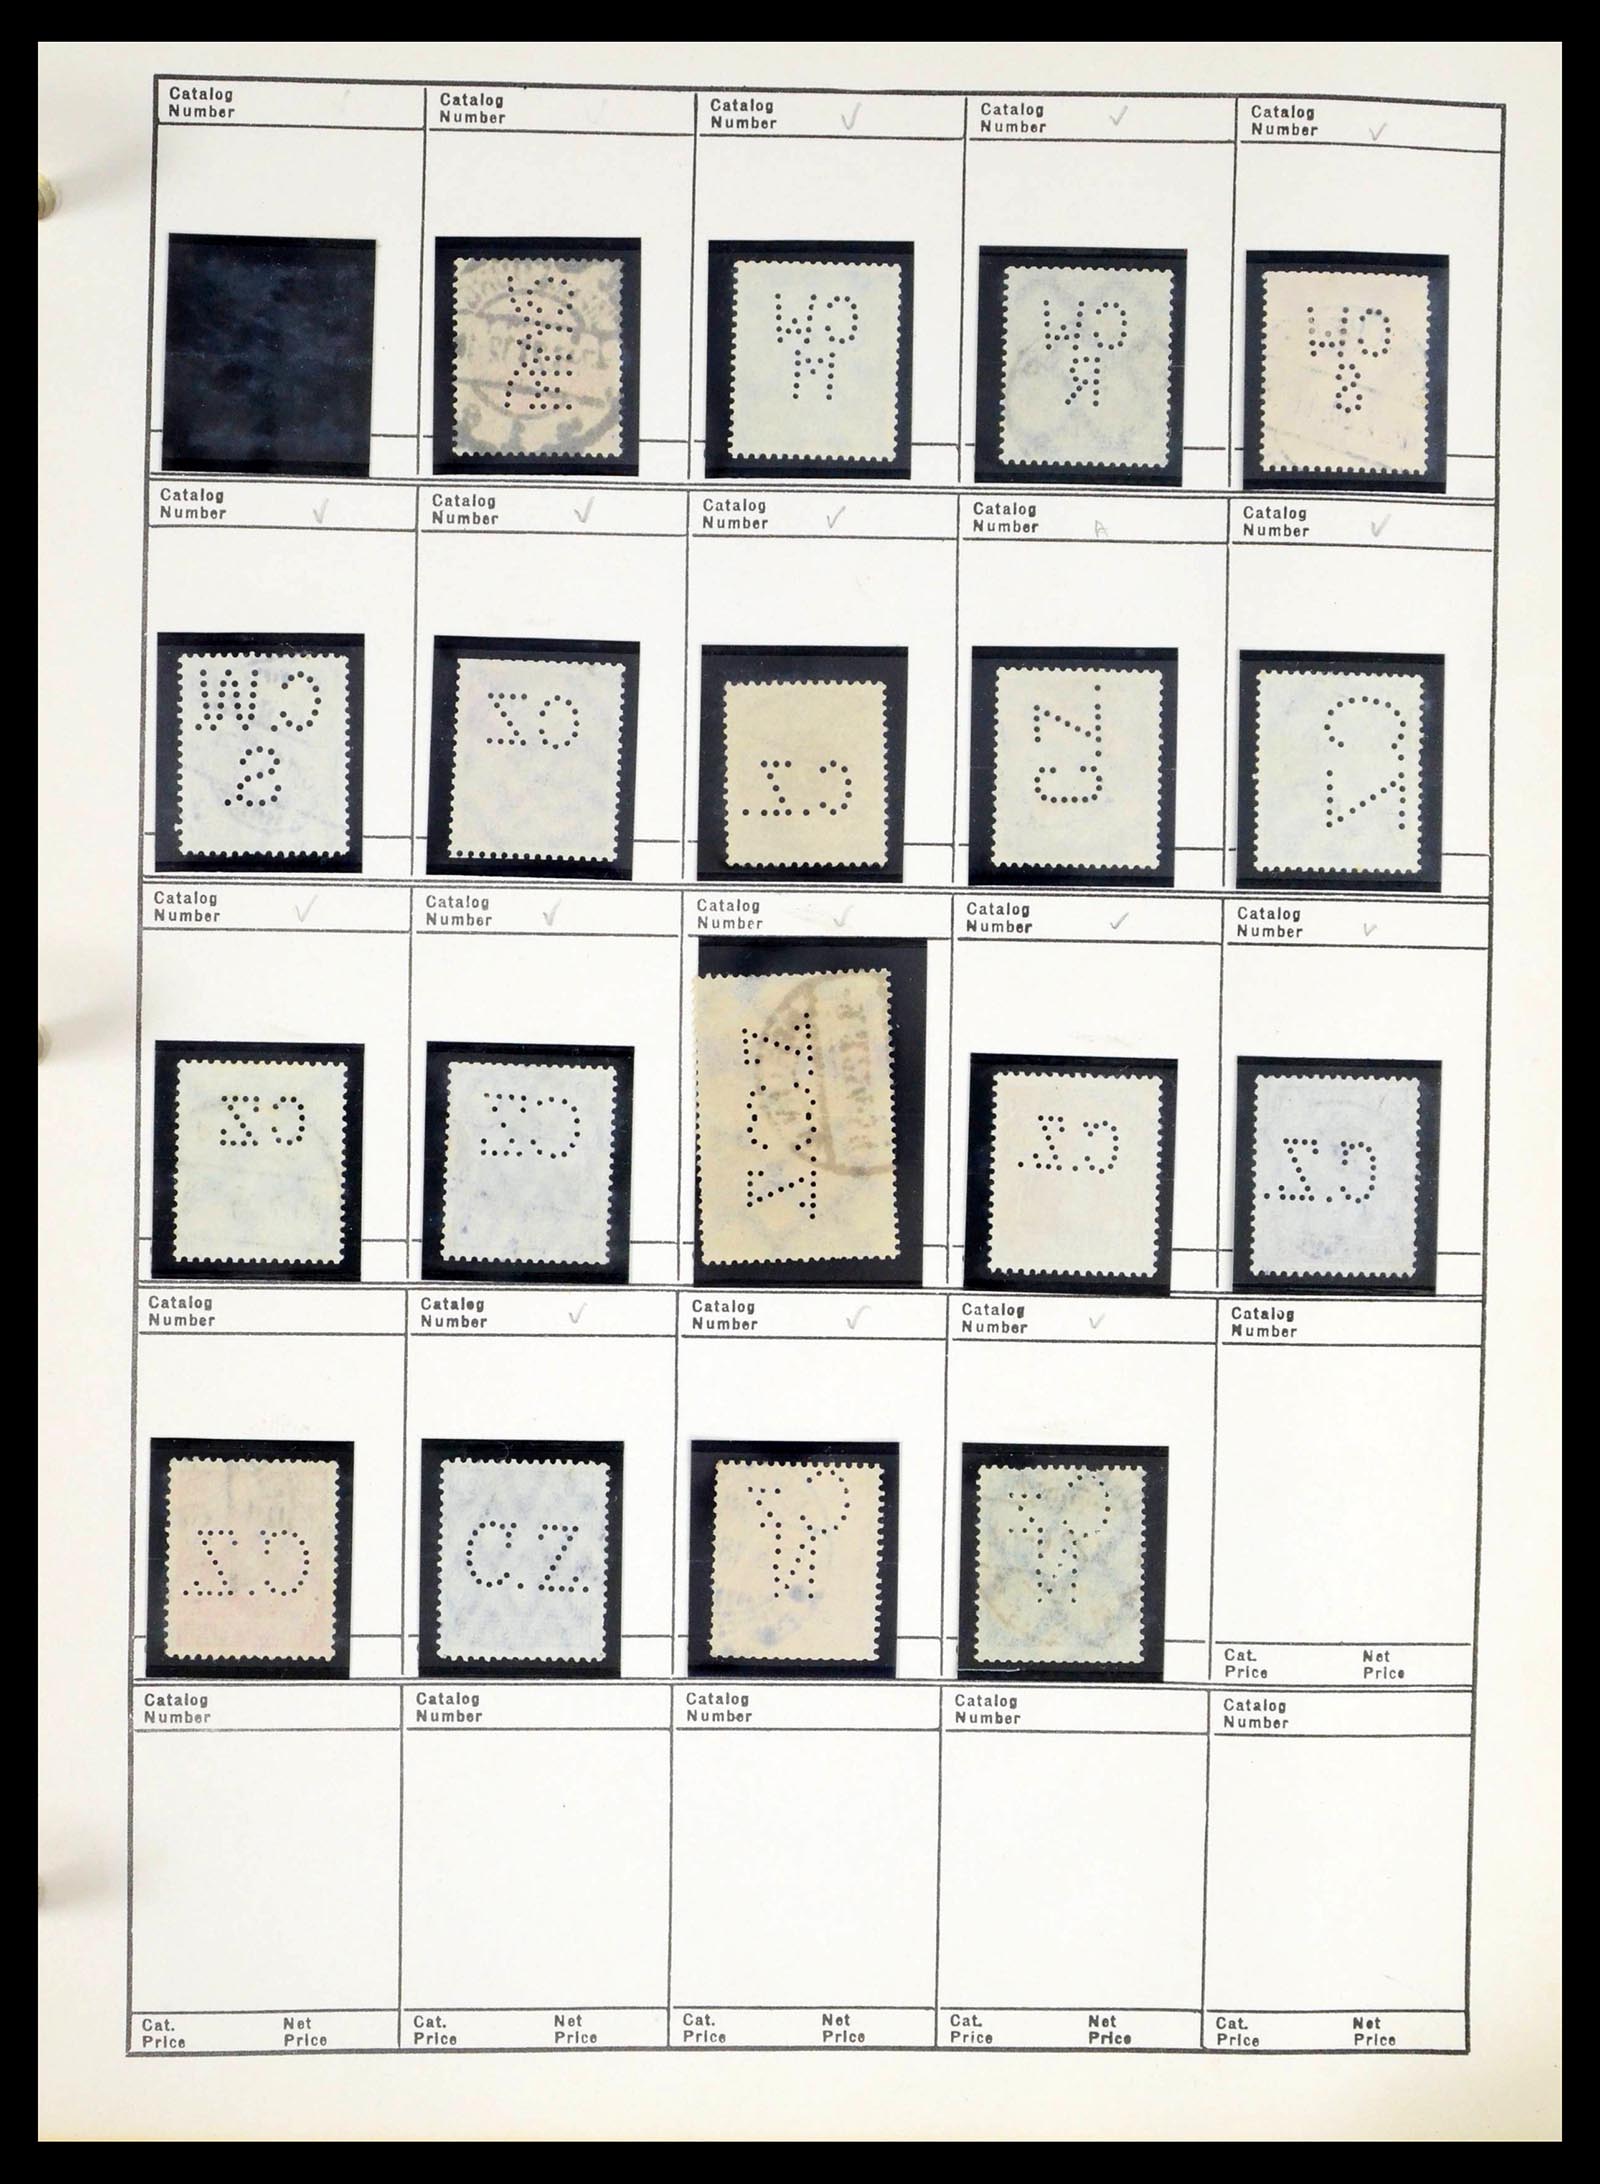 Catalog Number Catalog Number Catalog Number Catalog Number Catalog Number
CW M
CW R
CW 8
Catalog Number Catalog Number Catalog Number Catalog Number A Catalog Number
CW S
CZ
CZ
C.Z.
CZ
Catalog Number Catalog Number Catalog Number Catalog Number Catalog Number
CZ
CZ
C.Z.
C.Z.
Catalog Number Catalog Number Catalog Number Catalog Number Catalog Number
C.Z.
C.Z.
Cat. Price Net Price
Catalog Number Catalog Number Catalog Number Catalog Number Catalog Number
Cat. Price Net Price Cat. Price Net Price Cat. Price Net Price Cat. Price Net Price Cat. Price Net Price